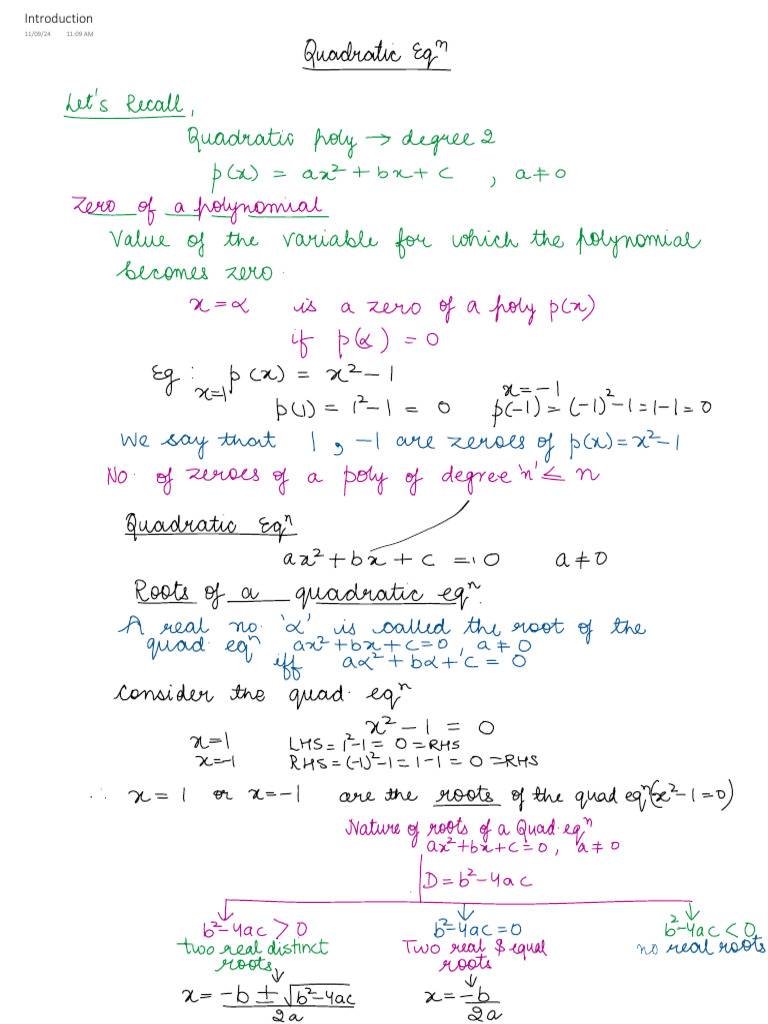 Introduction
11/09/24 11:09 AM
Quadratic Eqⁿ
Let's Recall,
Quadratic poly → degree 2
p(x) = ax² + bx + c , a ≠ 0
Zero of a polynomial
Value of the variable for which the polynomial
becomes zero.
x = α is a zero of a poly p(x)
if p(α) = 0
Eg : p(x) = x² - 1
x=1 x = -1
p(1) = 1² - 1 = 0 p(-1) = (-1)² - 1 = 1 - 1 = 0
We say that 1 , -1 are zeroes of p(x) = x² - 1
No. of zeroes of a poly of degree 'n' ≤ n
Quadratic Eqⁿ
ax² + bx + c = 0 a ≠ 0
Roots of a quadratic eqⁿ.
A real no. 'α' is called the root of the
quad eqⁿ ax² + bx + c = 0 , a ≠ 0
iff aα² + bα + c = 0
Consider the quad. eqⁿ
x² - 1 = 0
x = 1 LHS = 1² - 1 = 0 = RHS
x = -1 RHS = (-1)² - 1 = 1 - 1 = 0 = RHS
∴ x = 1 or x = -1 are the roots of the quad eqⁿ (x² - 1 = 0)
Nature of roots of a Quad. eqⁿ
ax² + bx + c = 0, a ≠ 0
D = b² - 4ac
b² - 4ac > 0 b² - 4ac = 0 b² - 4ac < 0
two real distinct Two real & equal no real roots
roots roots
x = -b ± √(b² - 4ac) / 2a x = -b / 2a